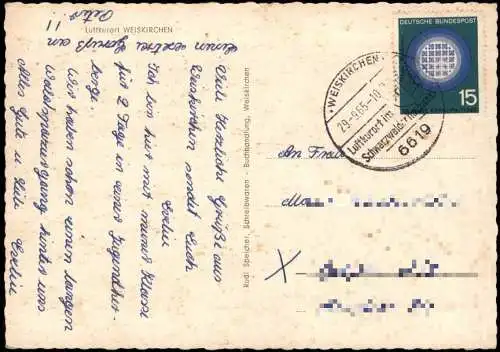 Luftkurort WEISKIRCHEN
Viele herzliche Grüße aus
Weiskirchen sendet Euch
Evelin
Ich bin hier mit meiner Klasse
für 2 Tage in einer Jugendher-
berge.
Wir haben schon einen langen
Waldspaziergang hinter uns
Alles Gute u. Viele
Evelin
einen
Gruß an
Rudi Speicher, Schreibwaren - Buchhandlung, Weiskirchen
DEUTSCHE BUNDESPOST
15
WEISKIRCHEN
29-9.65-10
Luftkurort im
Schwarzwälder Hochwald
6619
An Frau
X